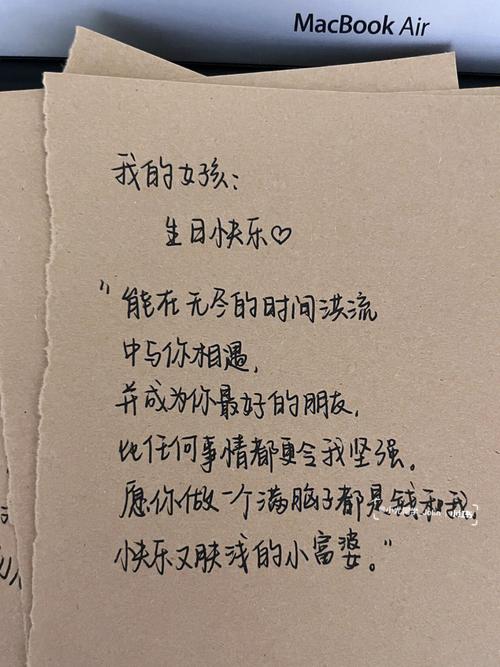 MacBook Air
我的女孩：
生日快乐♡
"能在无尽的时间洪流
中与你相遇，
并成为你最好的朋友，
比任何事情都更令我坚强。
愿你做一个满脑子都是钱和我，
快乐又肤浅的小富婆。"